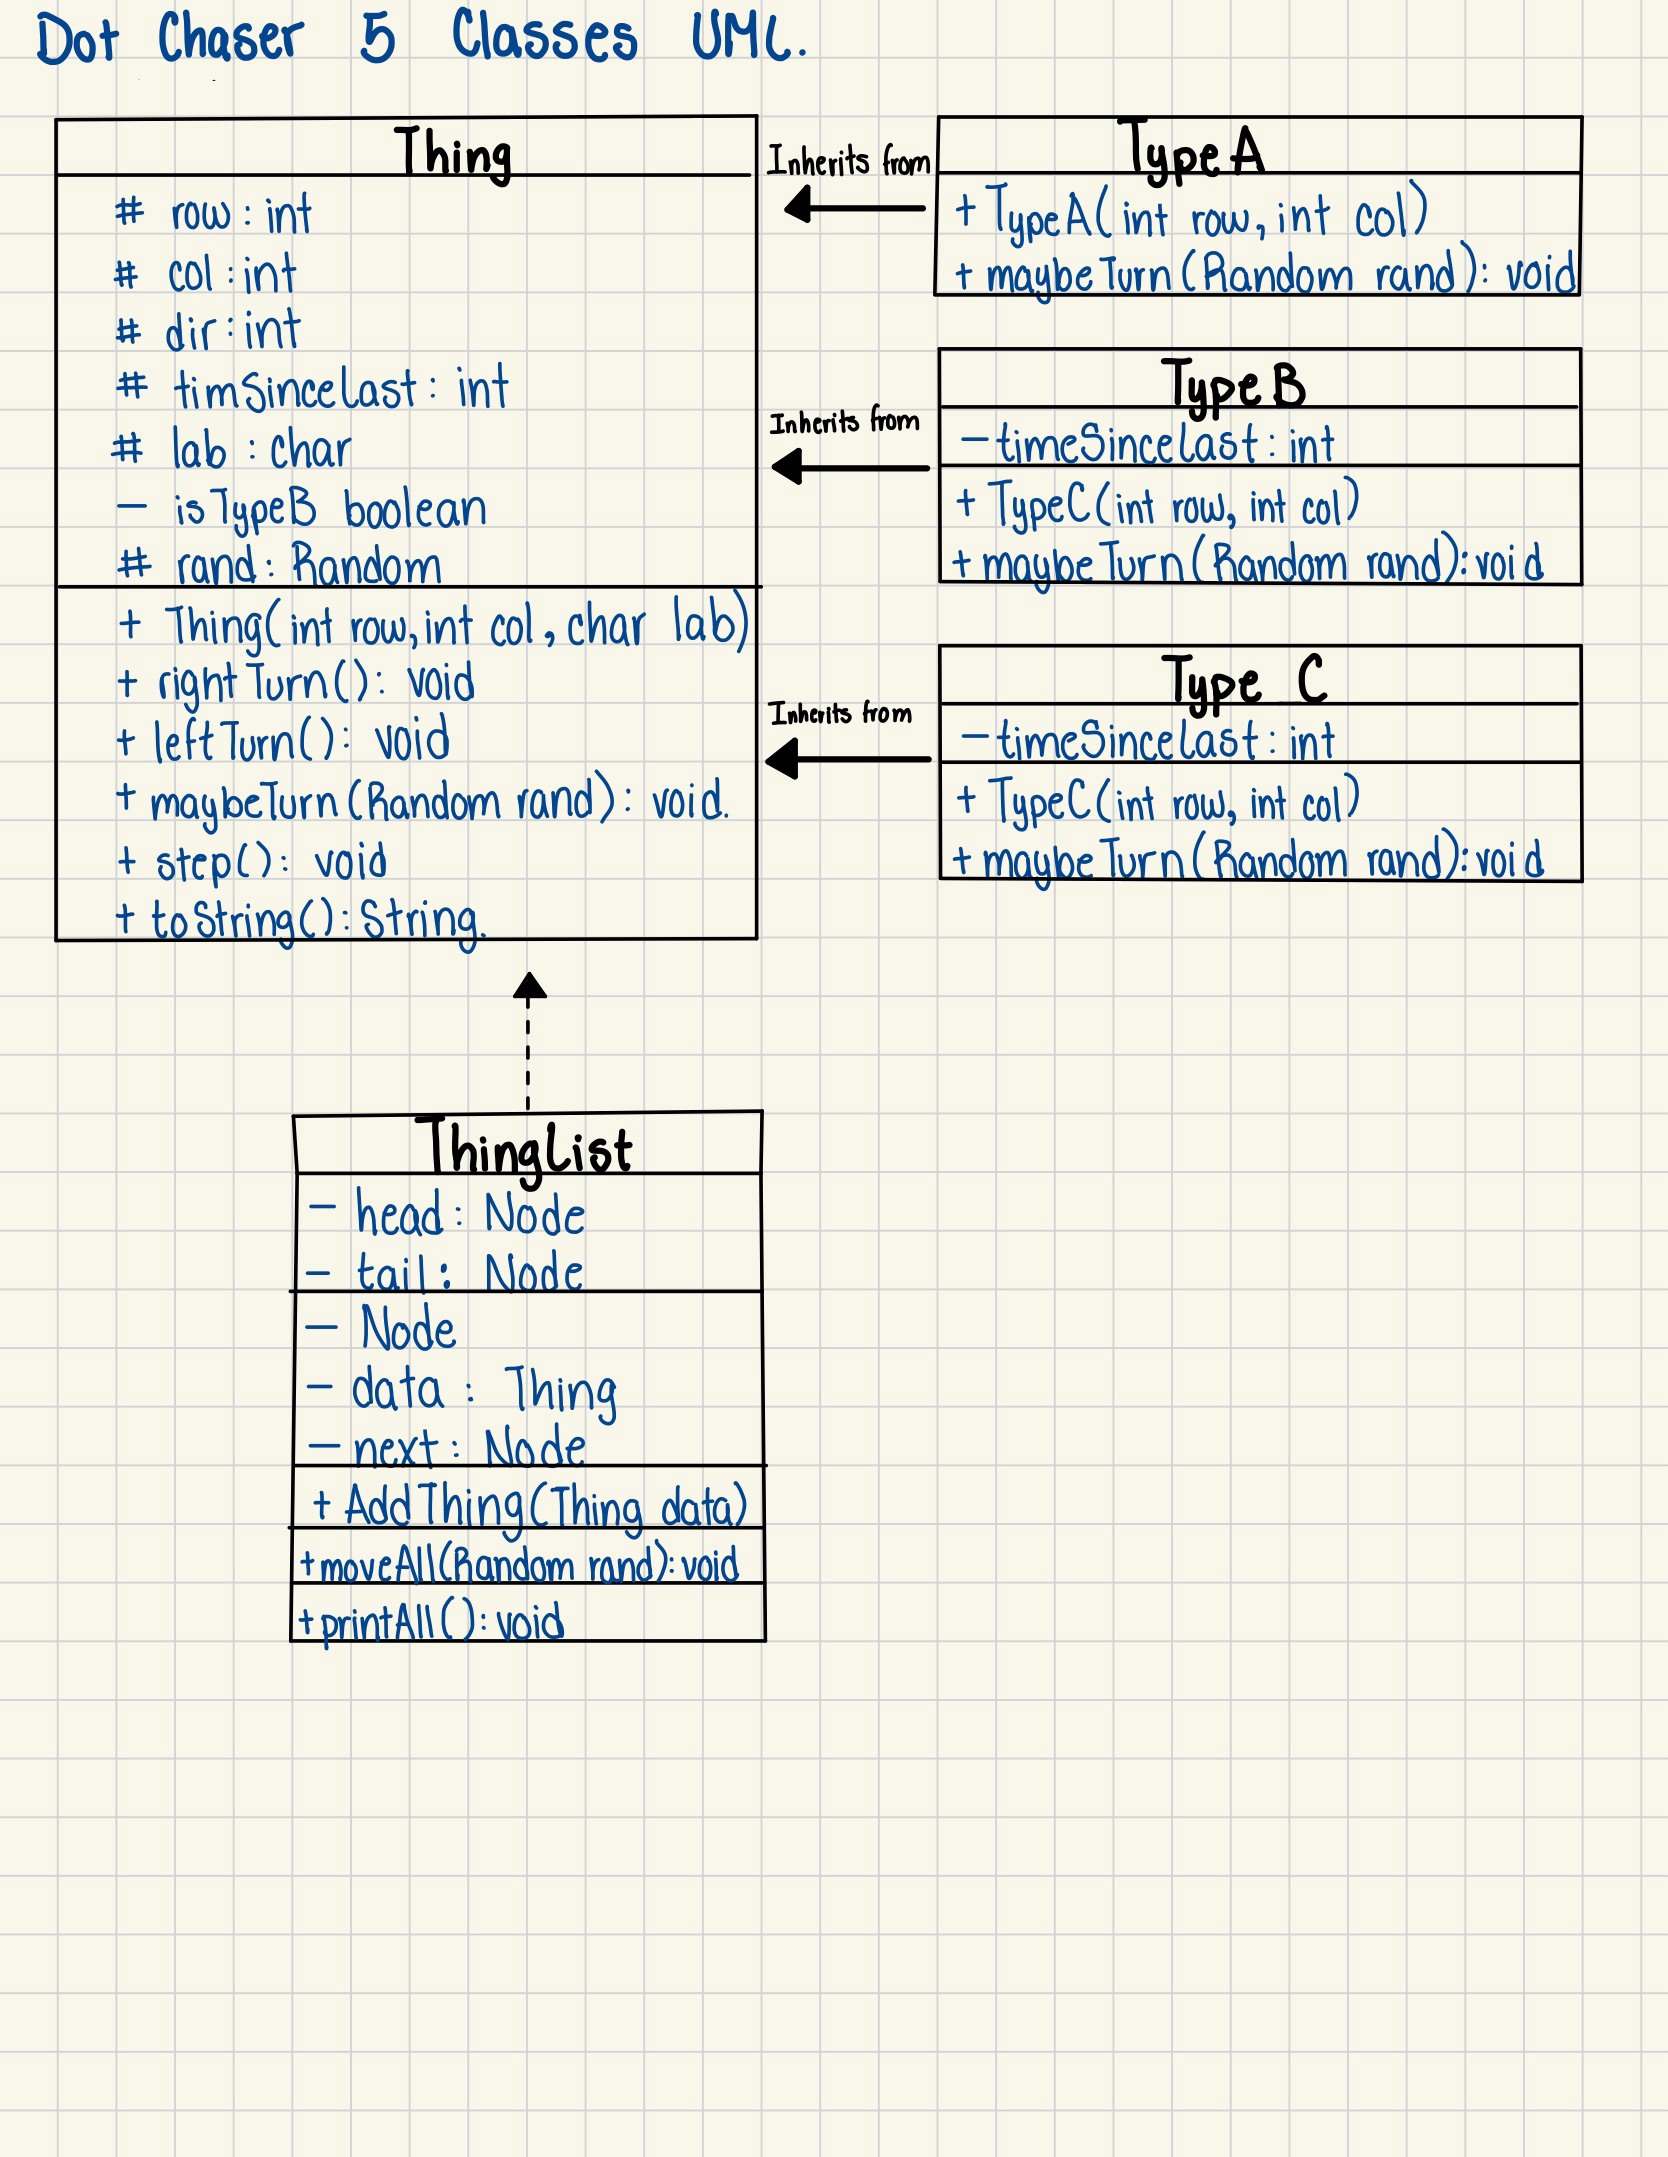 Dot Chaser 5 Classes UML.
Thing
# row : int
# col : int
# dir : int
# timSinceLast : int
# lab : char
- isTypeB boolean
# rand : Random
+ Thing(int row, int col, char lab)
+ rightTurn(): void
+ leftTurn(): void
+ maybeTurn(Random rand): void.
+ step(): void
+ toString(): String.
Inherits from
Inherits from
Inherits from
TypeA
+ TypeA(int row, int col)
+ maybeTurn(Random rand): void
TypeB
- timeSinceLast : int
+ TypeC(int row, int col)
+ maybeTurn(Random rand): void
Type C
- timeSinceLast : int
+ TypeC(int row, int col)
+ maybeTurn(Random rand): void
ThingList
- head : Node
- tail : Node
- Node
- data : Thing
- next : Node
+ AddThing(Thing data)
+ moveAll(Random rand): void
+ printAll(): void